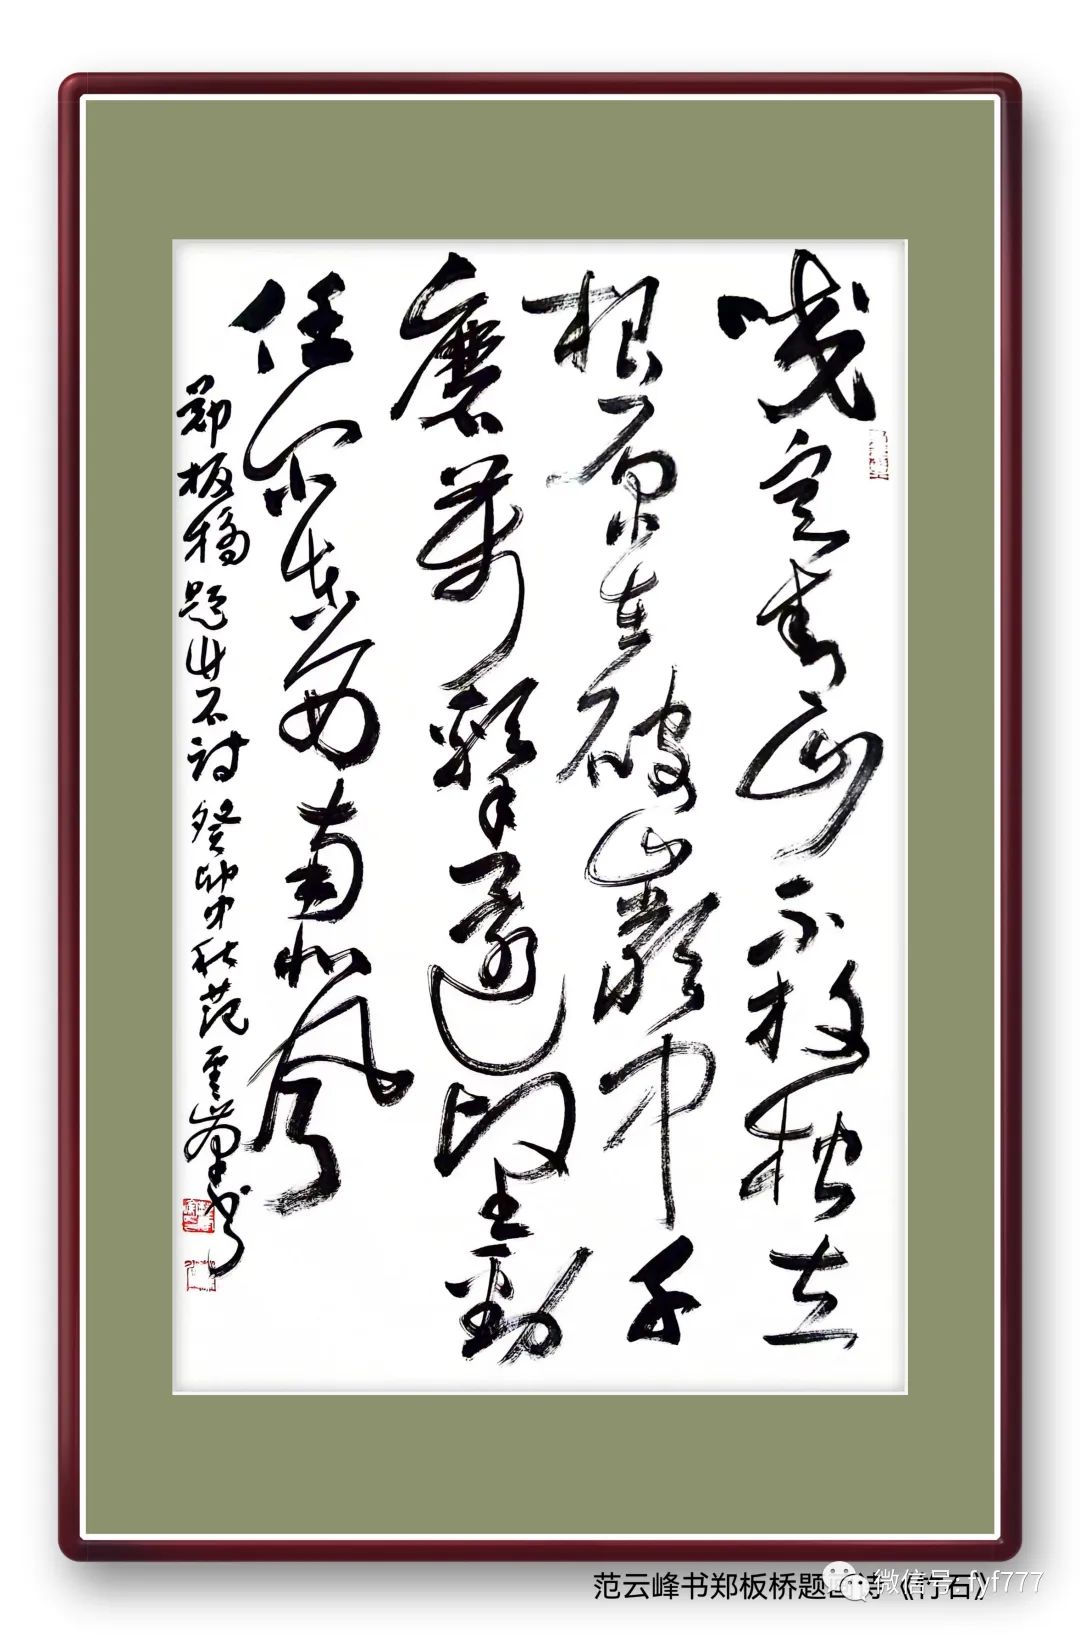 咬定青山不放松立
根原在破巖中千
磨萬擊還堅勁
任尔东西南北风
郑板橋题竹石诗癸卯中秋范雲峰书
范云峰书郑板桥题画诗《竹石》
微信号: fyf777